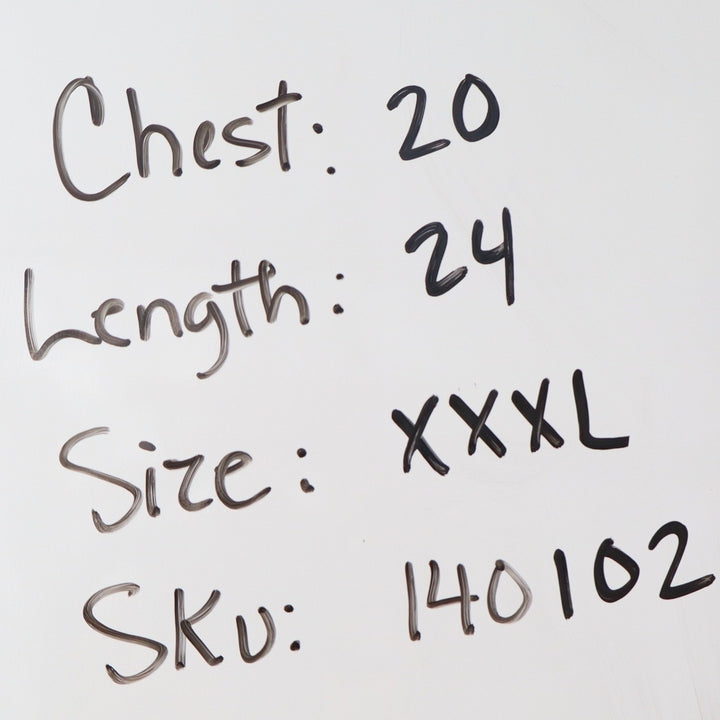 Chest: 20
Length: 24
Size: XXXL
SKU: 140102